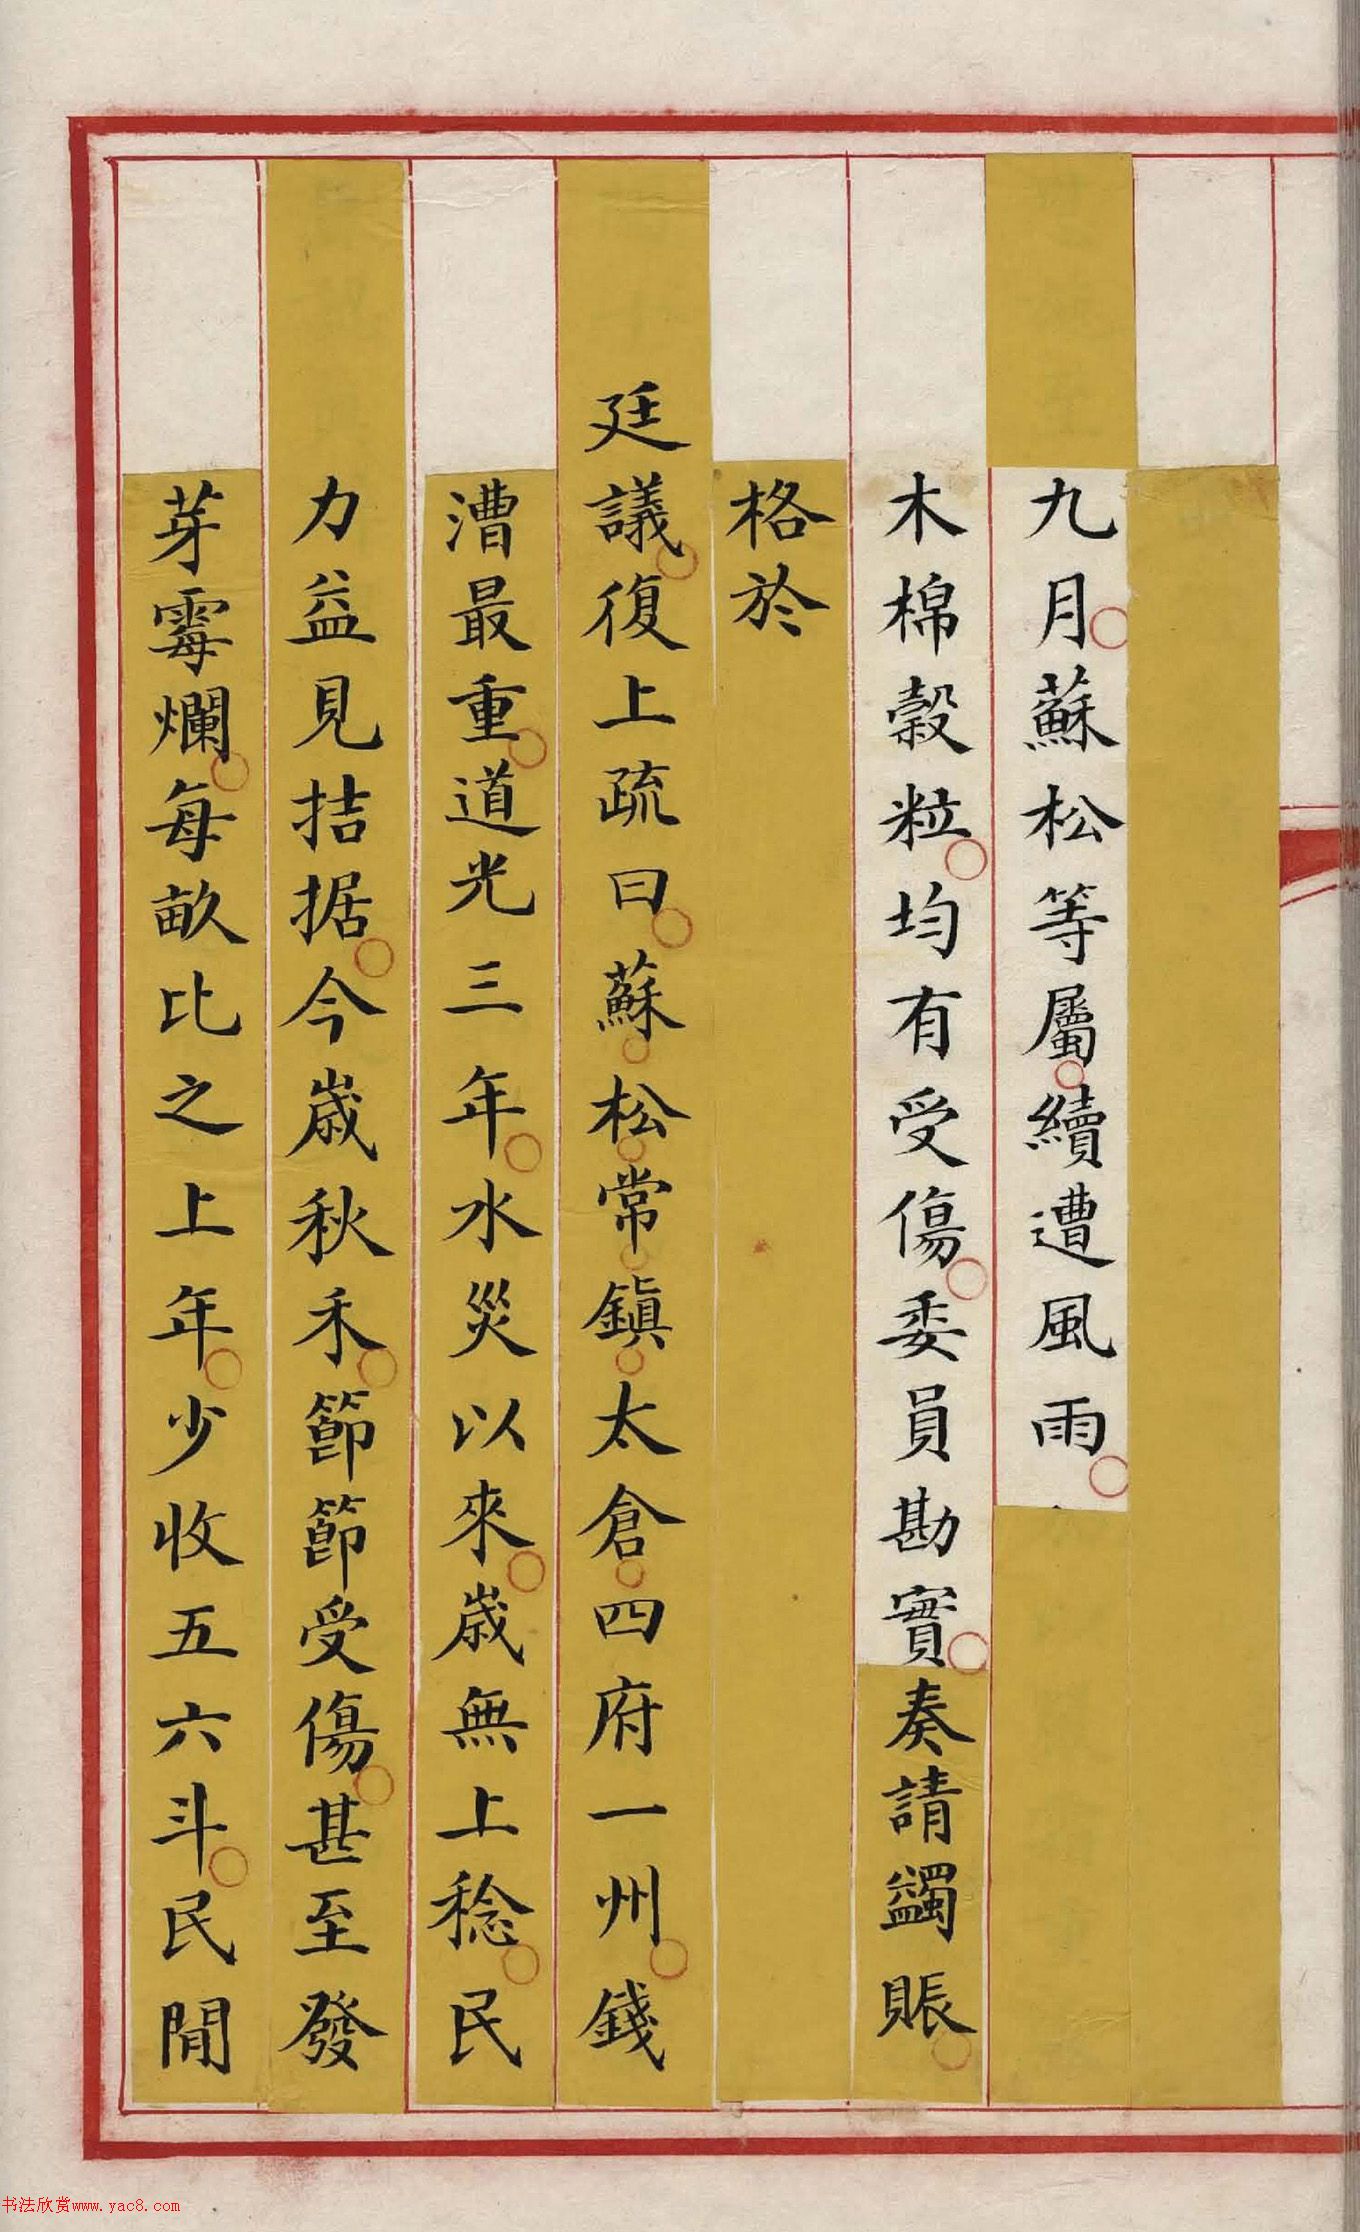 九月蘇松等屬續遭風雨
木棉穀粒均有受傷委員勘實奏請蠲賑
格於
廷議復上疏曰蘇松常鎮太倉四府一州錢
漕最重道光三年水災以來歲無上稔民
力益見拮据今歲秋禾節節受傷甚至發
芽霉爛每畝比之上年少收五六斗民間
书法欣赏www.yac8.com